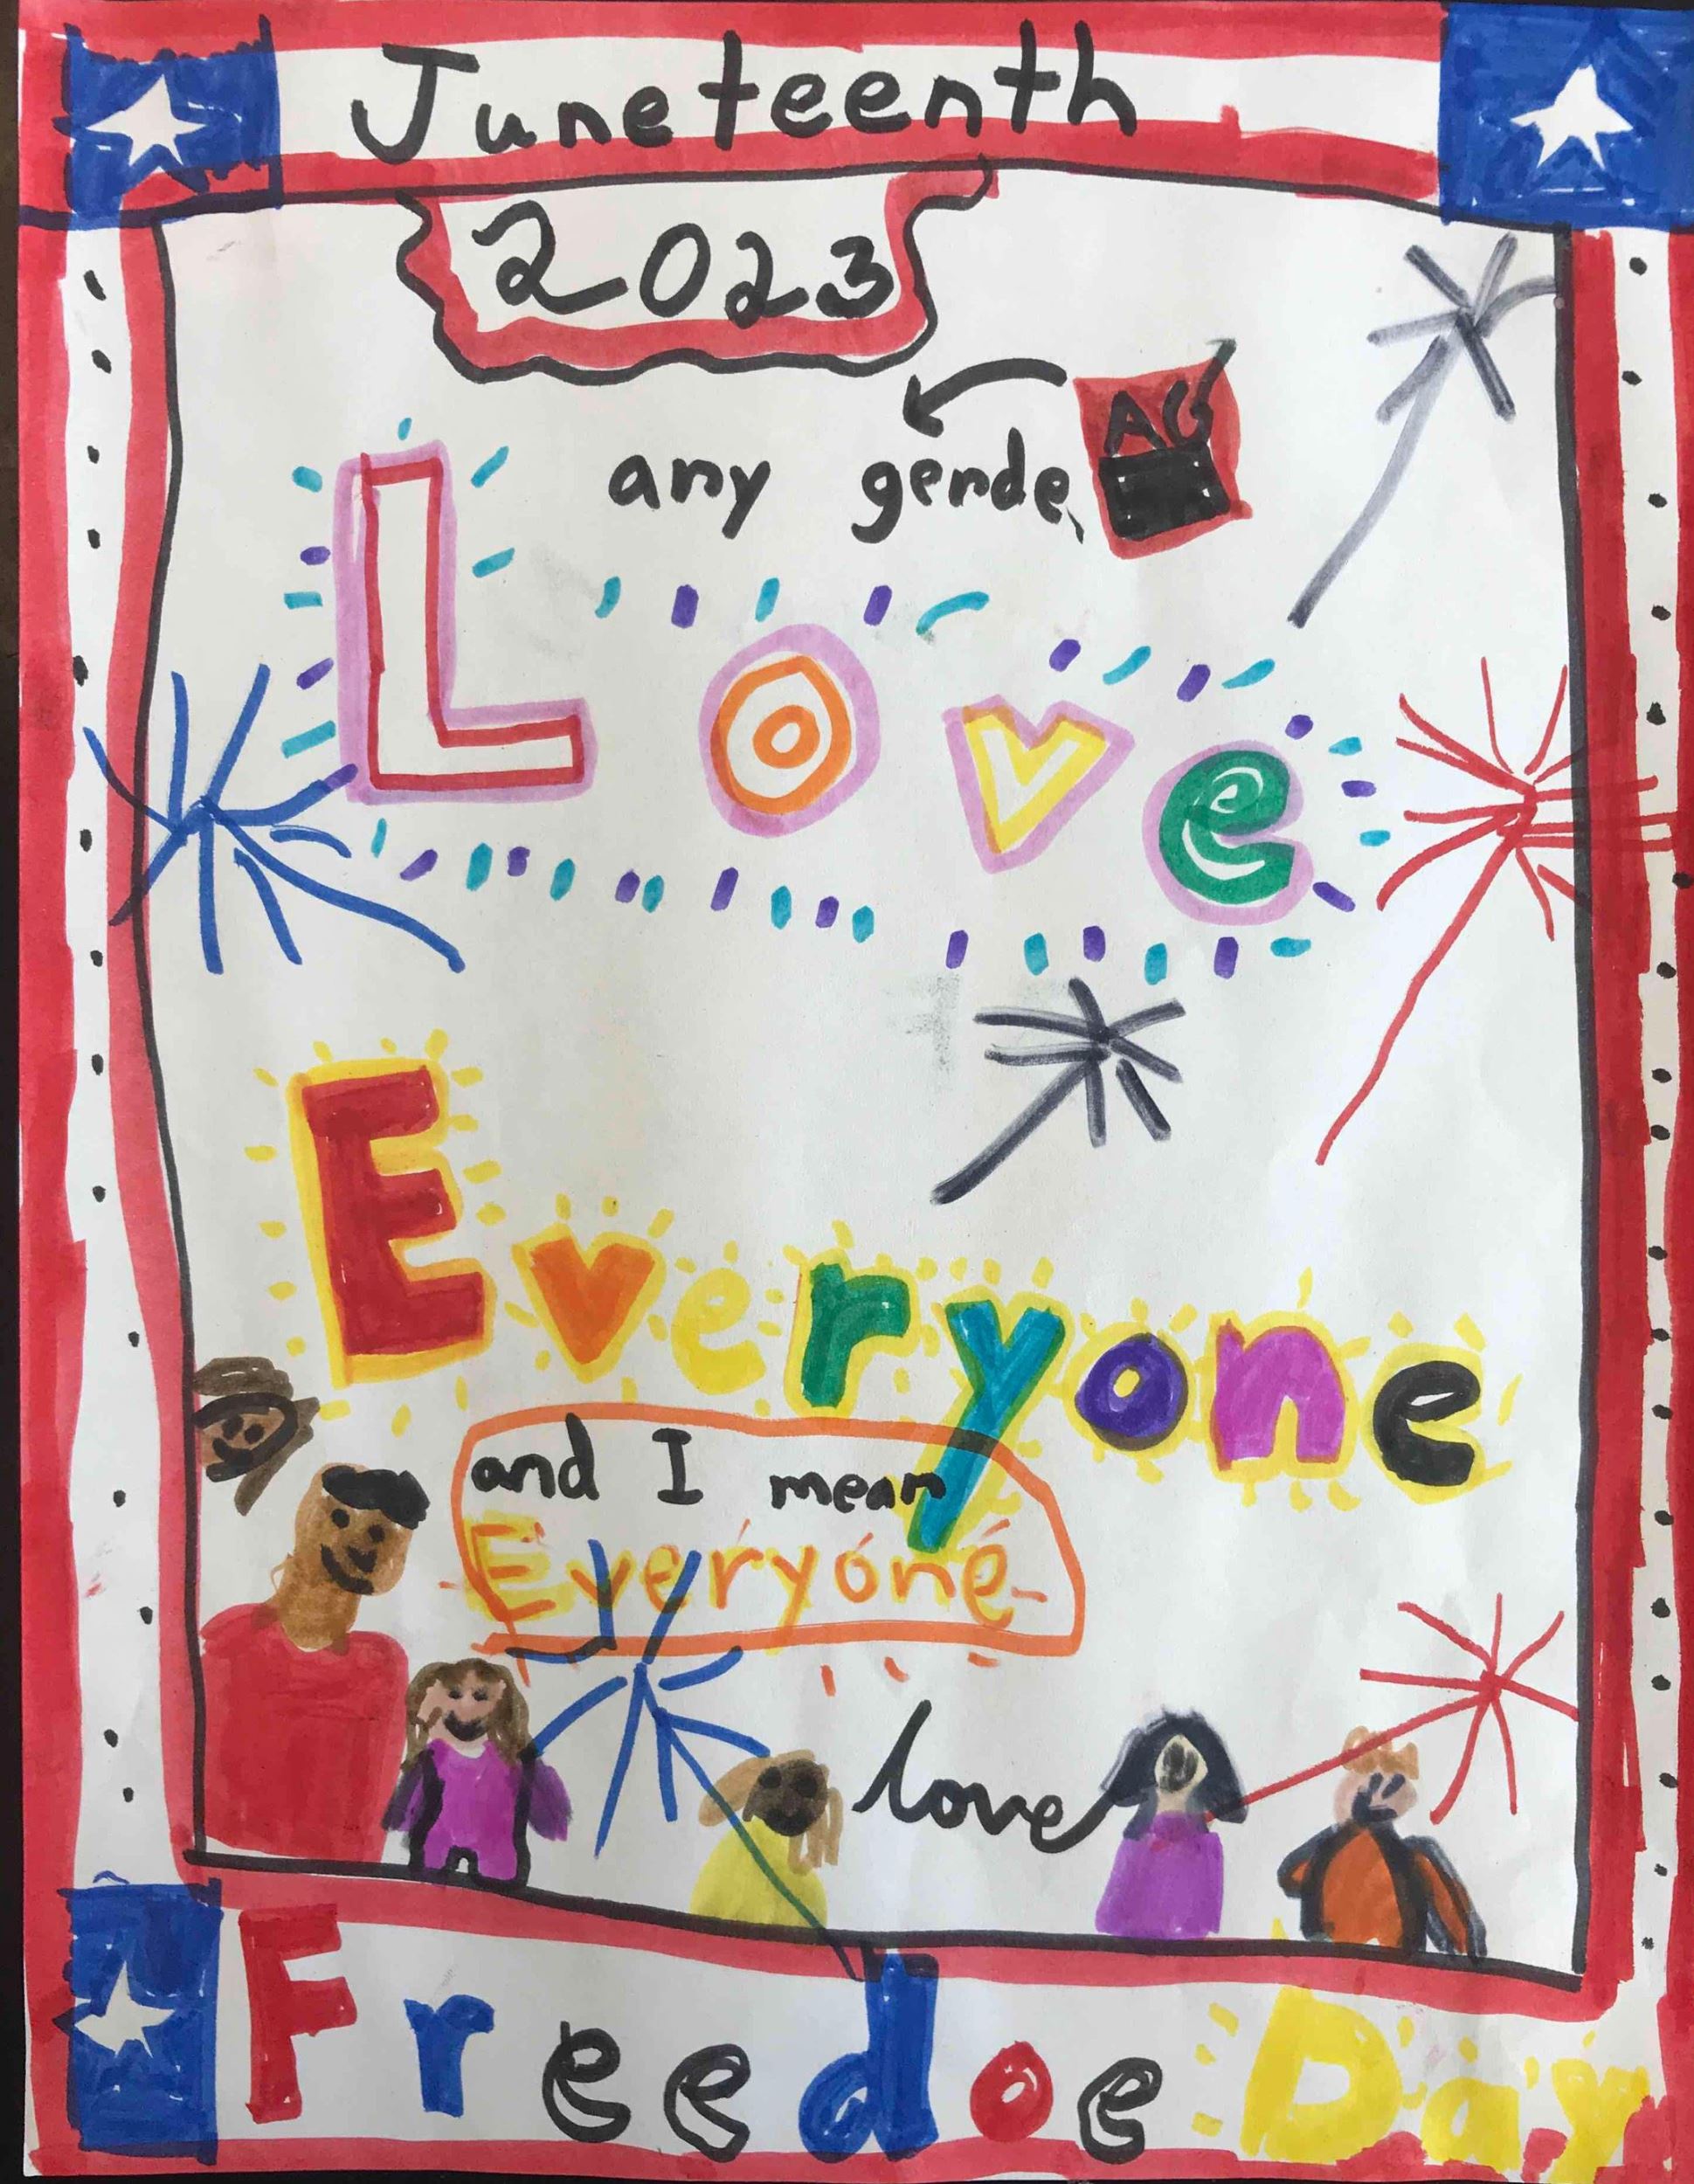 Juneteenth
2023
AG
any gende
Love
Everyone
and I mean
Everyone
love
Freedoe Day